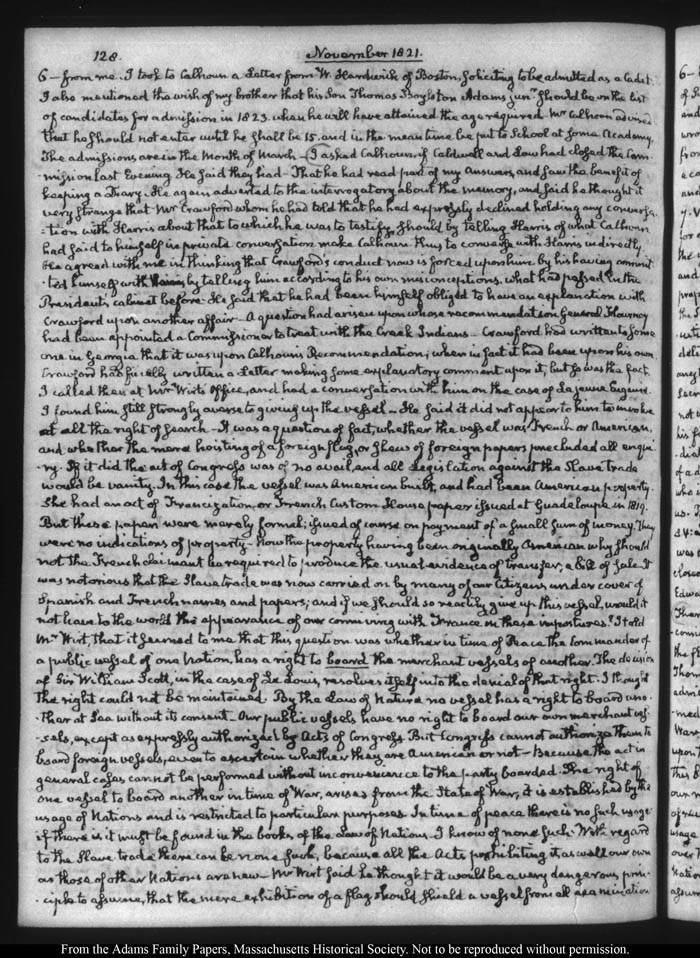 128.
November 1821.
6 — from me. I took to Calhoun a Letter from W. Hardwick of Boston, soliciting to be admitted as a Cadet.
I also mentioned the wish of my brother that his Son Thomas Boylston Adams junr. should be on the list
of candidates for admission in 1823. when he will have attained the age required. Mr Calhoun advised
that he should not enter until he shall be 15. and in the mean time be put to School at some Academy.
The admissions are in the Month of March — I asked Calhoun, if Caldwell and Law had closed the Com-
-mission last Evening. He said they had — That he had read part of my answers, and saw the benefit of
keeping a Diary. He again adverted to the interrogatory about the memory, and said he thought it
very strange that Mr Crawford whom he had told that he had expressly declined holding any conversa-
-tion with Harris about that to which he was to testify, should by telling Harris of what Calhoun
had said to himself in private conversation make Calhoun thus to converse with Harris indirectly.
He agreed with me in thinking that Crawford's conduct now is forced upon him by his having commit-
-ted himself with Harris by telling him according to his own misconceptions, what had passed in the
President's cabinet before. He said that he had been himself obliged to have an explanation with
Crawford upon another affair — A question had arisen upon whose recommendation General Flournoy
had been appointed a Commissioner to treat with the Creek Indians — Crawford had written to some
one in Georgia that it was upon Calhoun's Recommendation; when in fact it had been upon his own.
Crawford had finally written a Letter making some explanatory comment upon it, but so was the fact.
I called then at Mr Wirt's Office, and had a conversation with him on the case of La Jeune Eugenie.
I found him still strongly averse to giving up the vessel — He said it did not appear to him to involve
at all the right of search — It was a question of fact, whether the vessel was French or American,
and whether the mere hoisting of a foreign flag, or shew of foreign papers precluded all enqui-
-ry. If it did the act of Congress was of no avail, and all Legislation against the Slave trade
would be vanity. In this case the vessel was American built, and had been American property.
She had an act of Francization, or French Custom House paper issued at Guadeloupe in 1819.
But these papers were merely formal; issued of course on payment of a small sum of money. They
were no indications of property — Now the property having been originally American why should
not the French claimant be required to produce the usual evidence of transfer, a Bill of Sale. It
was notorious that the Slave trade was now carried on by many of our Citizens under cover of
Spanish and French names and papers; and if we should so readily give up this vessel, would it
not have to the world the appearance of our conniving with France in these impostures? I told
Mr Wirt, that it seemed to me that this question was whether in time of Peace the Commander of
a public vessel of one Nation, has a right to board the merchant vessels of another. The decision
of Sir William Scott, in the case of Le Louis, resolves itself into the denial of that right. I thought
the right could not be maintained. By the Law of Nature no vessel has a right to board ano-
-ther at Sea without its consent — Our public vessels have no right to board our own merchant ves-
-sels, except as expressly authorized by Acts of Congress. But Congress cannot authorize them to
board foreign vessels, even to ascertain whether they are American or not — Because the act in
general cases cannot be performed without inconvenience to the party boarded. The right of
one vessel to board another in time of War, arises from the State of War, it is established by the
usage of Nations and is restricted to particular purposes. In time of peace there is no such usage
if there is it must be found in the books of the Law of Nations. I know of none such. With regard
to the Slave trade there can be none such, because all the Acts prohibiting it as well our own
as those of other Nations are new — Mr Wirt said he thought it would be a very dangerous prin-
-ciple to assume, that the mere exhibition of a flag should shield a vessel from all examination
From the Adams Family Papers, Massachusetts Historical Society. Not to be reproduced without permission.